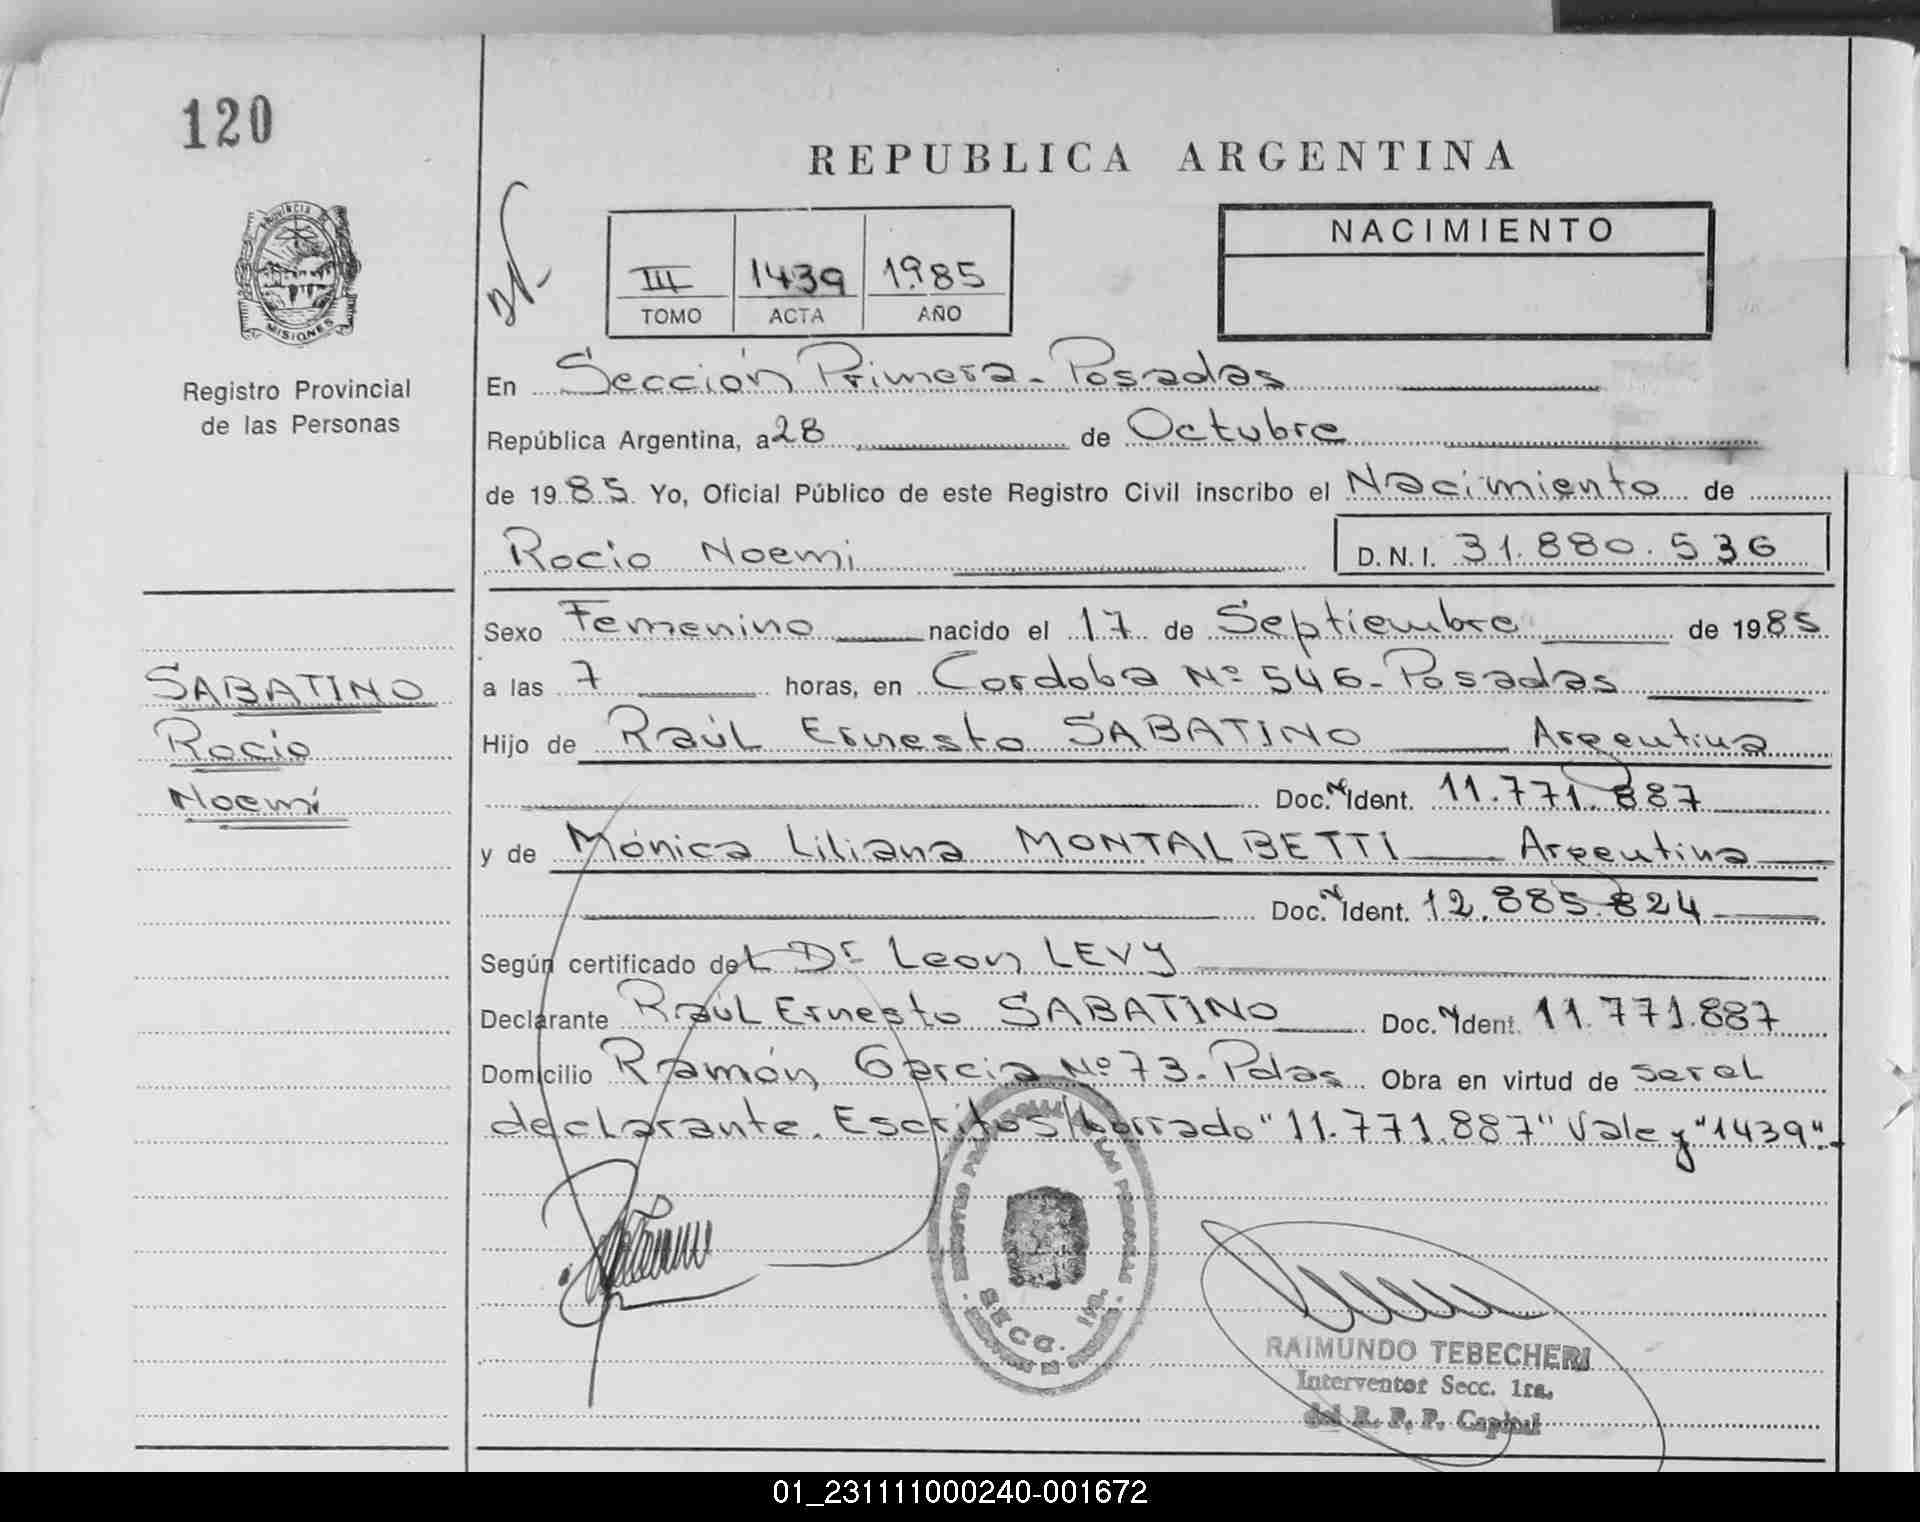 120
REPUBLICA ARGENTINA
PROVINCIA DE
MISIONES
Registro Provincial
de las Personas
III 1439 1985
TOMO ACTA AÑO
NACIMIENTO
En Sección Primera - Posadas
República Argentina, a 28 de Octubre
de 1985. Yo, Oficial Público de este Registro Civil inscribo el Nacimiento de
Rocio Noemi D.N.I. 31.880.536
SABATINO
Rocio
Noemí
Sexo Femenino nacido el 17 de Septiembre de 1985
a las 7 horas, en Cordoba Nº 546 - Posadas
Hijo de Raúl Ernesto SABATINO Argentina
Doc. N Ident. 11.771.887
y de Mónica Liliana MONTALBETTI Argentina
Doc. N Ident. 12.885.824
Según certificado del Dr Leon LEVY
Declarante Raúl Ernesto SABATINO Doc. N Ident. 11.771.887
Domicilio Ramón Garcia Nº 73. Pdas Obra en virtud de ser el
declarante. Escritos/borrado "11.771.887" Vale y "1439".-
SECC. 1ra.
RAIMUNDO TEBECHERI
Interventor Secc. 1ra.
del R. P. P. Capital
01_231111000240-001672